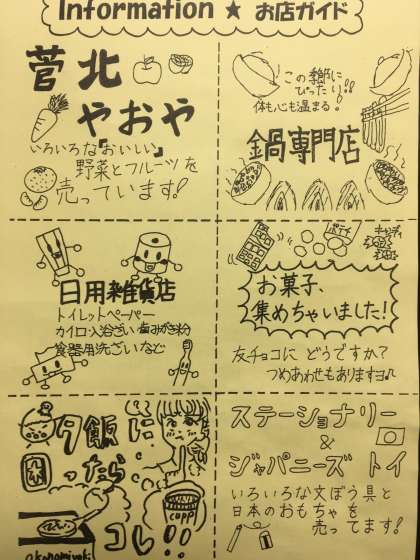 Information ★ お店ガイド
菅北
やおや
いろいろな『おいしい』
野菜とフルーツを
売っています!
この季節に
ぴったり!!
体も心も温まる!
鍋専門店
日用雑貨店
トイレットペーパー
カイロ・入浴ざい・歯みがき粉
食器用洗ざいなど
ポテチ
キャンディ
お菓子、
集めちゃいました!
友チョコに どうですか?
つめあわせもありますヨ♪
夕飯に
困ったら
コレ!!
CUPP
okonomiyaki
ステーショナリー
&
ジャパニーズ トイ
いろいろな文ぼう具と
日本のおもちゃを
売ってます!